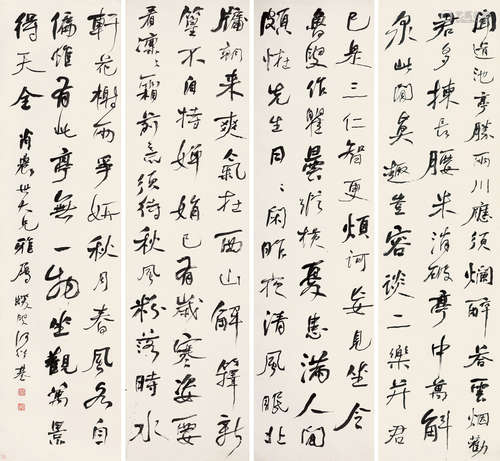 聞道池亭勝兩川應須爛醉答雲烟勸
君多揀長腰米消破亭中萬斛
泉此間真趣豈容談二樂并君
已是三仁智更煩訶妄見坐令
魯叟作瞿曇縱橫憂患滿人間
頗怪先生日日閑昨夜清風眠北
牖朝來爽氣在西山解籜新
篁不自持嬋娟已有歲寒姿要
看凜凜霜前意須待秋風粉落時水
軒花榭兩爭妍秋月春風各自
偏惟有此亭無一物坐觀萬景
得天全 世大兄雅屬 蝯叟何紹基